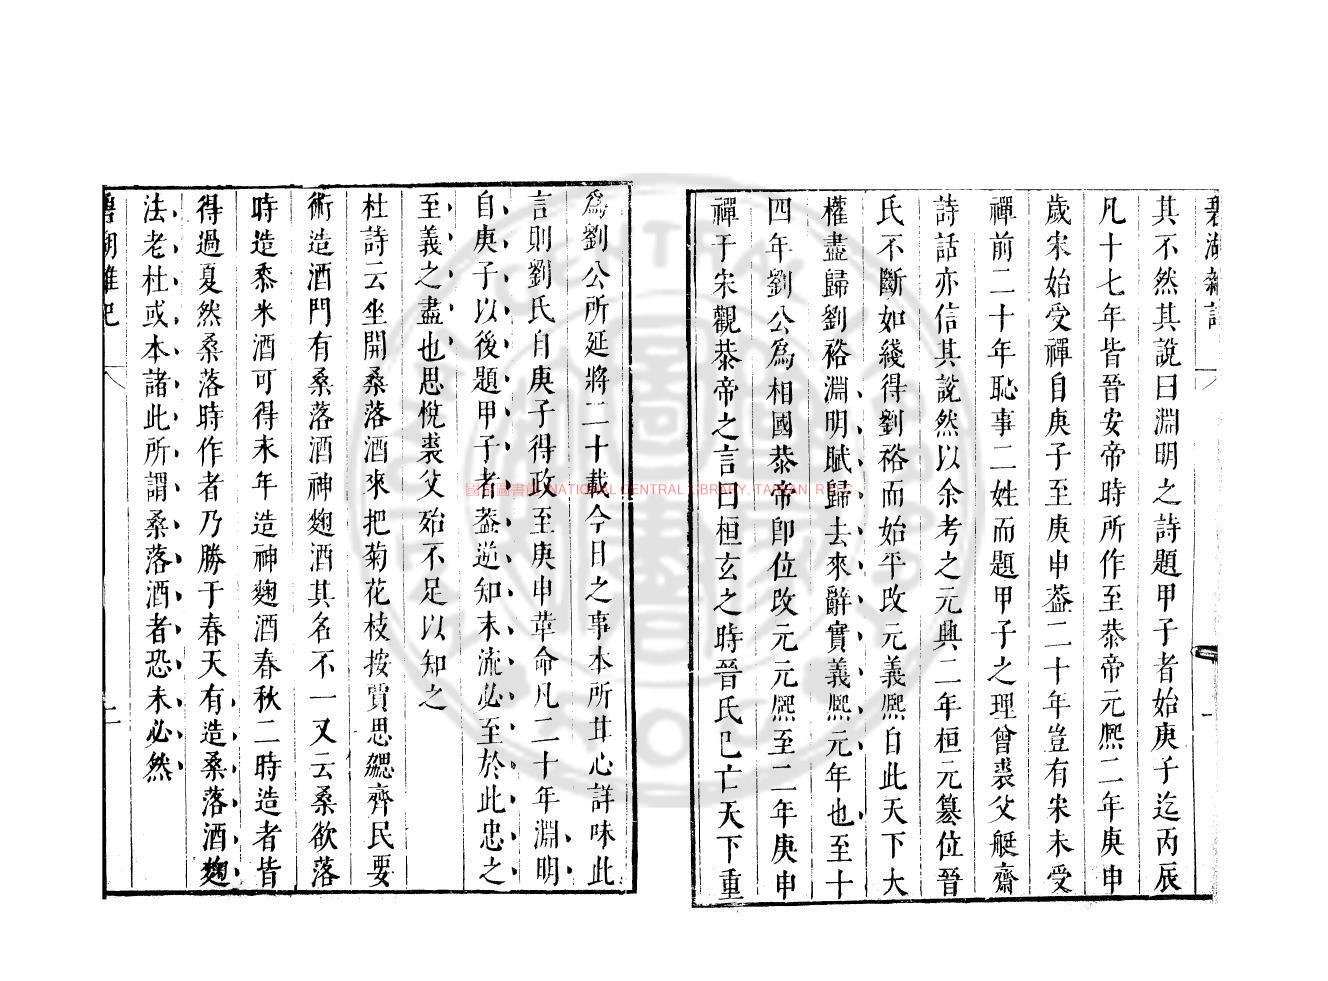 碧湖雜記
一
其不然其說曰淵明之詩題甲子者始庚子迄丙辰
凡十七年皆晉安帝時所作至恭帝元熙二年庚申
歲宋始受禪自庚子至庚申葢二十年豈有宋未受
禪前二十年恥事二姓而題甲子之理曾裘父艇齋
詩話亦信其說然以余考之元興二年桓元簒位晉
氏不斷如綫得劉裕而始平改元義熙自此天下大
權盡歸劉裕淵明賦歸去來辭實義熙元年也至十
四年劉公爲相國恭帝卽位改元元熙至二年庚申
禪于宋觀恭帝之言曰桓玄之時晉氏已亡天下重
爲劉公所延將二十載今日之事本所甘心詳味此
言則劉氏自庚子得政至庚申革命凡二十年淵明
自庚子以後題甲子者葢逆知末流必至於此忠之
至義之盡也思悅裘父殆不足以知之
杜詩云坐開桑落酒來把菊花枝按賈思勰齊民要
術造酒門有桑落酒神麴酒其名不一又云桑欲落
時造黍米酒可得末年造神麴酒春秋二時造者皆
得過夏然桑落時作者乃勝于春天有造桑落酒麴
法老杜或本諸此所謂桑落酒者恐未必然
碧湖雜記
NATIONAL CENTRAL LIBRARY, TAIWAN, R.O.C